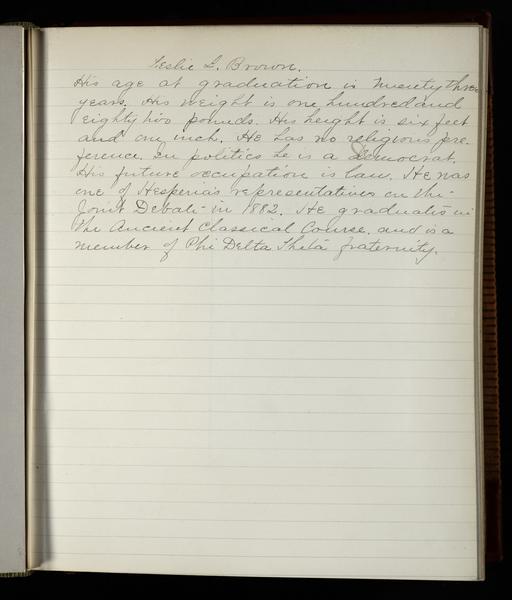 Leslie L. Brown.
His age at graduation is twenty three
years. His weight is one hundred and
eighty two pounds. His height is six feet
and one inch. He has no religious pre-
ference. In politics he is a Democrat.
His future occupation is law. He was
one of Hesperia's representatives on the
Joint Debate in 1882. He graduates in
the Ancient Classical Course, and is a
member of Phi Delta Theta fraternity.